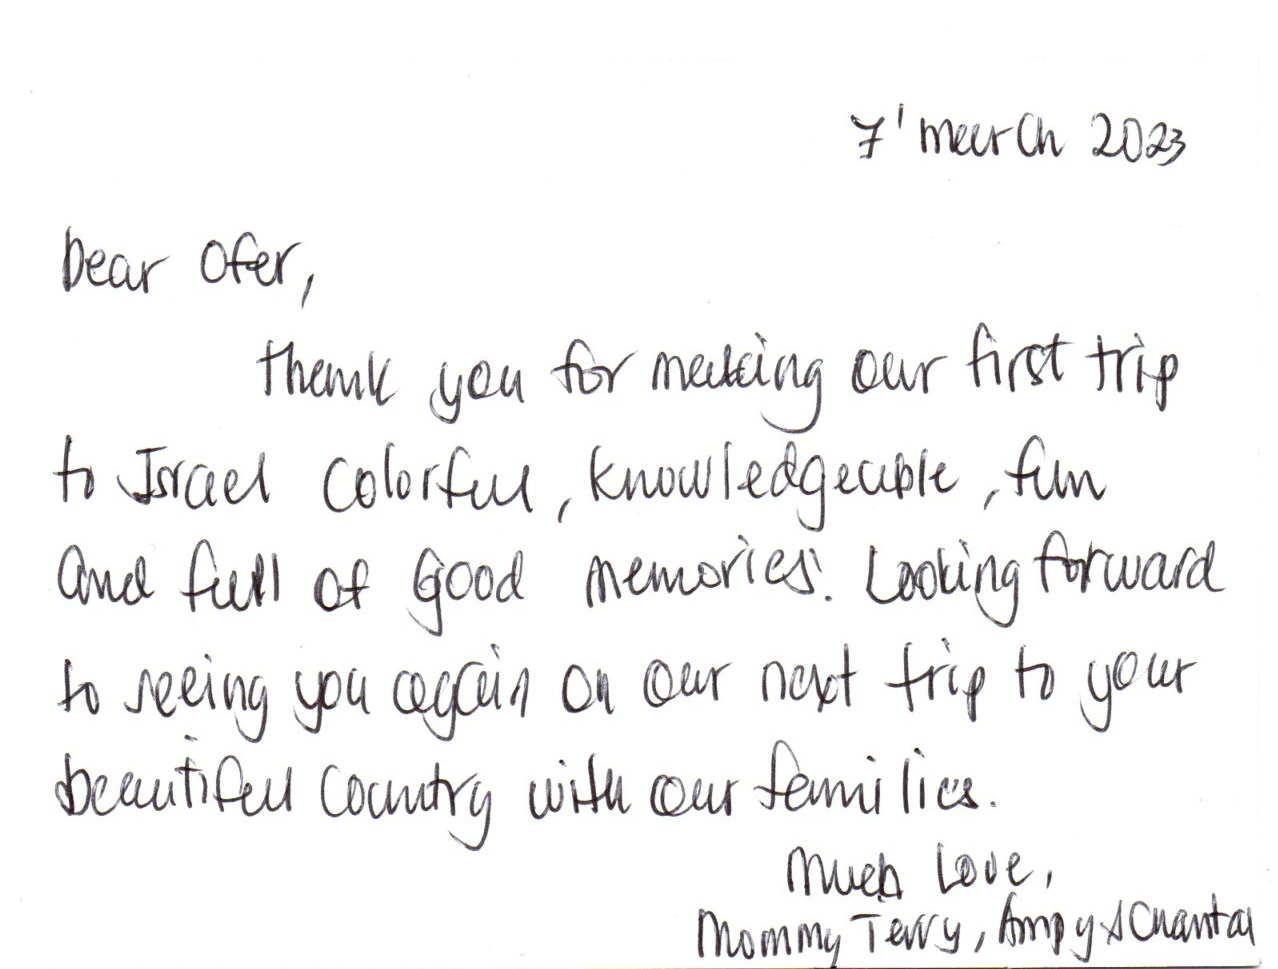 7' March 2023
Dear Ofer,
Thank you for making our first trip
to Israel colorful, knowledgeable, fun
and full of good memories. Looking forward
to seeing you again on our next trip to your
beautiful country with our families.
Much Love,
Mommy Terry, Ampy & Chantal